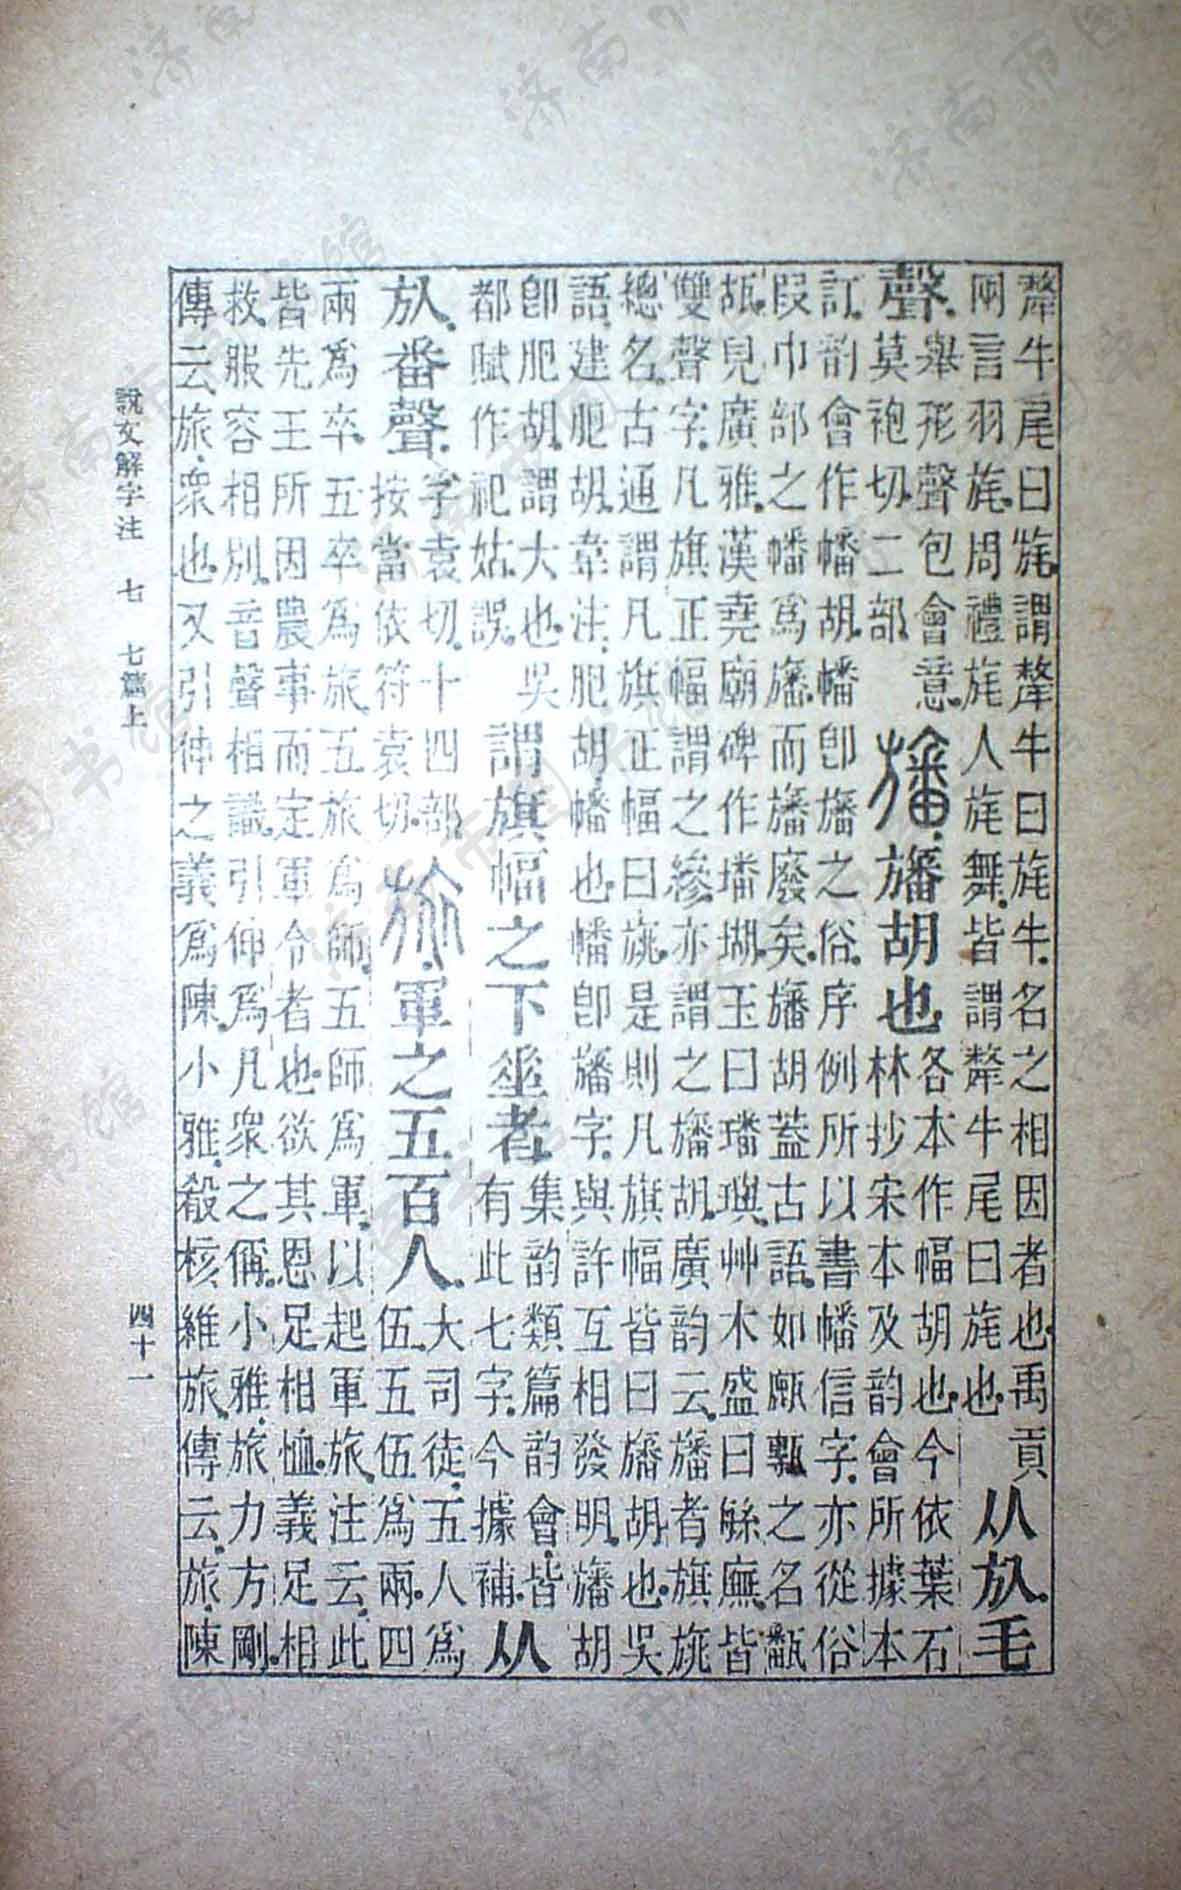 犛牛尾曰旄。謂犛牛曰旄牛。名之相因者也。禹貢
兩言羽旄。周禮旄人旄舞。皆謂犛牛尾曰旄也。
从㫃。毛
聲。
舉形聲包會意。
莫袍切。二部
旛。旛胡也
各本作幅胡也。今依葉石
林抄宋本及韵會所據本
訂。韵會作幡胡。幡即旛之俗。序例所以書幡信字。亦從俗
叚巾部之幡爲旛。而旛廢矣。旛胡蓋古語。如甎之名
瓳。見廣雅。漢堯廟碑作墦瑚。玉曰璠璵。艸木盛曰緐廡。皆
雙聲字。凡旗正幅謂之縿。亦謂之旛胡。廣韵云。旛者。旗旐
總名。古通謂凡旗正幅曰旐。是則凡旗幅皆曰旛胡也。吳
語。建肥胡。韋注。肥胡。幡也。幡即旛字。與許互相發明。旛胡
即肥胡。謂大也。吳
都賦作祀姑。誤。
謂旗幅之下𠂹者
集韵類篇韵會。皆
有此七字。今據補。
从
㫃。番聲。
孚袁切。十四部
按當依符袁切。
旅。軍之五百人。
大司徒。五人爲
伍。五伍爲兩。四
兩爲卒。五卒爲旅。五旅爲師。五師爲軍。以起軍旅。注云。此
皆先王所因農事而定軍令者也。欲其恩足相恤。義足相
救。服容相別。音聲相識。引伸爲凡衆之偁。小雅。旅力方剛。
傳云。旅。衆也。又引伸之義爲陳。小雅。殽核維旅。傳云。旅。陳
說文解字注 七 七篇上
四十一